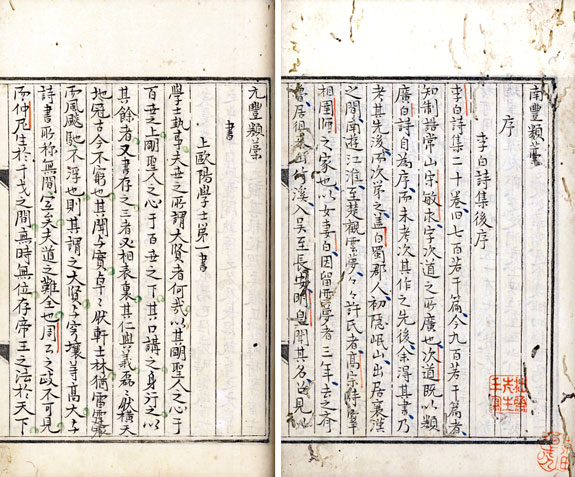 南豐類藁
序
李白詩集後序
李白詩集二十卷旧七百若干篇今九百若干篇者
知制誥常山宋敏求字次道之所廣也次道既以類
廣白詩自為序而未考次其作之先後余得其書乃
考其先後而次第之盖白蜀郡人初隱岷山出居襄漢
之間南遊江淮至楚觀雲夢々々許氏者高宗時宰
相圉師之家也以女妻白因留雲夢者三年去之齊
魯居徂徠山竹溪入吳至長安明皇聞其名召見以
元豐類藁
書
上歐陽學士第一書
學士執事夫世之所謂大賢者何哉以其明聖人之心于
百世之上明聖人之心于百世之下其口講之身行之以
其餘者又書存之三者又相表裏其仁與義磊々然橫天
地冠古今不窮也其聞與實卓々然軒士林猶雷霆震
而風飈馳不浮也則其謂之大賢与穹壤等高大与
詩書所称無間宜矣夫道之難全也周公之政不可見
而仲尼生於干戈之間無時無位存帝王之法於天下